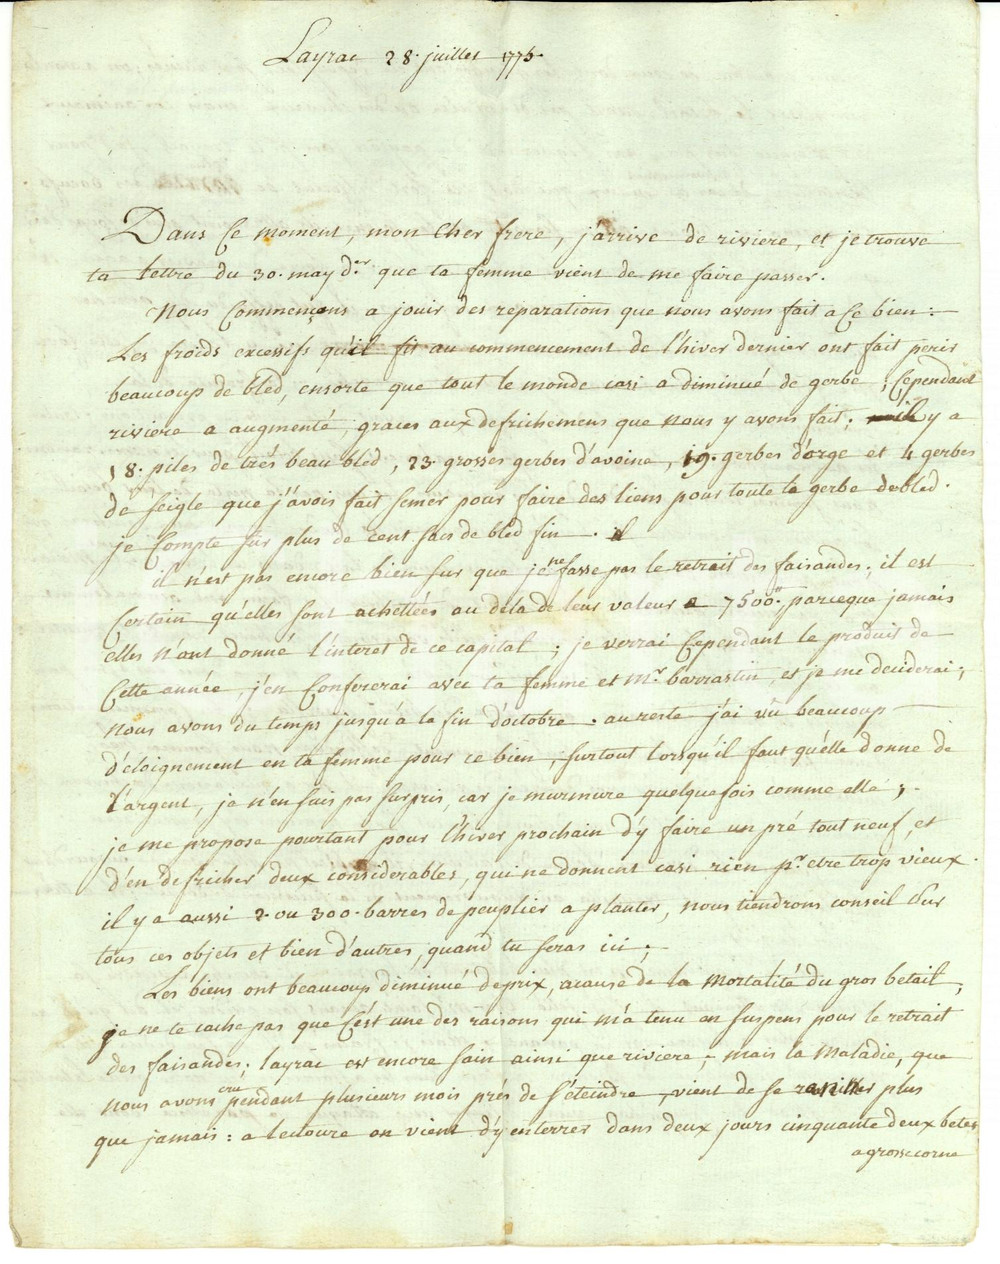 Layrac 28. juillet 1775.
Dans ce moment, mon cher frere, j'arrive de riviere, et je trouve
ta lettre du 30. may d.er que ta femme vient de me faire passer.
Nous commençons a jouir des reparations que nous avons fait a ce bien:
Les froids excessifs qu'il fit au commencement de l'hiver dernier ont fait perir
beaucoup de bled, ensorte que tout le monde casi a diminué de gerbe; cependant
riviere a augmenté, graces aux defrichemens que nous y avons fait; il y a
18. piles de trés beau bled, 23. grosses gerbes d'avoine, 19. gerbes d'orge et 4 gerbes
de séigle que j'avois fait semer pour faire des liens pour toute la gerbe de bled.
je compte sur plus de cent sacs de bled fin.
il n'est pas encore bien sur que je ne fasse pas le retrait des faisandes; il est
certain qu'elles sont achettées au dela de leur valeur a 7500.tt, parceque jamais
elles n'ont donné l'interet de ce capital; je verrai cependant le produit de
cette année, j'en confererai avec ta femme et M.r barrastin, et je me deciderai;
nous avons du temps jusqu'à la fin d'octobre. au reste j'ai vû beaucoup
d'éloignement en ta femme pour ce bien, surtout lorsqu'il faut qu'elle donne de
l'argent, je n'en suis pas surpris, car je murmure quelquefois comme elle;
je me propose pourtant pour l'hiver prochain d'y faire un pré tout neuf, et
d'en defricher deux considerables, qui ne donnent casi rien p.r etre trop vieux.
il y a aussi 2. ou 300. barres de peuplier a planter, nous tiendrons conseil sur
tous ces objets et bien d'autres, quand tu seras ici;
Les biens ont beaucoup diminué de prix, acause de la mortalité du gros betail,
je ne te cache pas que c'est une des raisons qui m'a tenu en suspens pour le retrait
des faisandes; layrac est encore sain ainsi que riviere; mais la maladie, que
nous avons cru pendant plusieurs mois prés de s'éteindre, vient de se plus
que jamais: a lectoure on vient d'y enterrer dans deux jours cinquante deux betes
a grosse corne